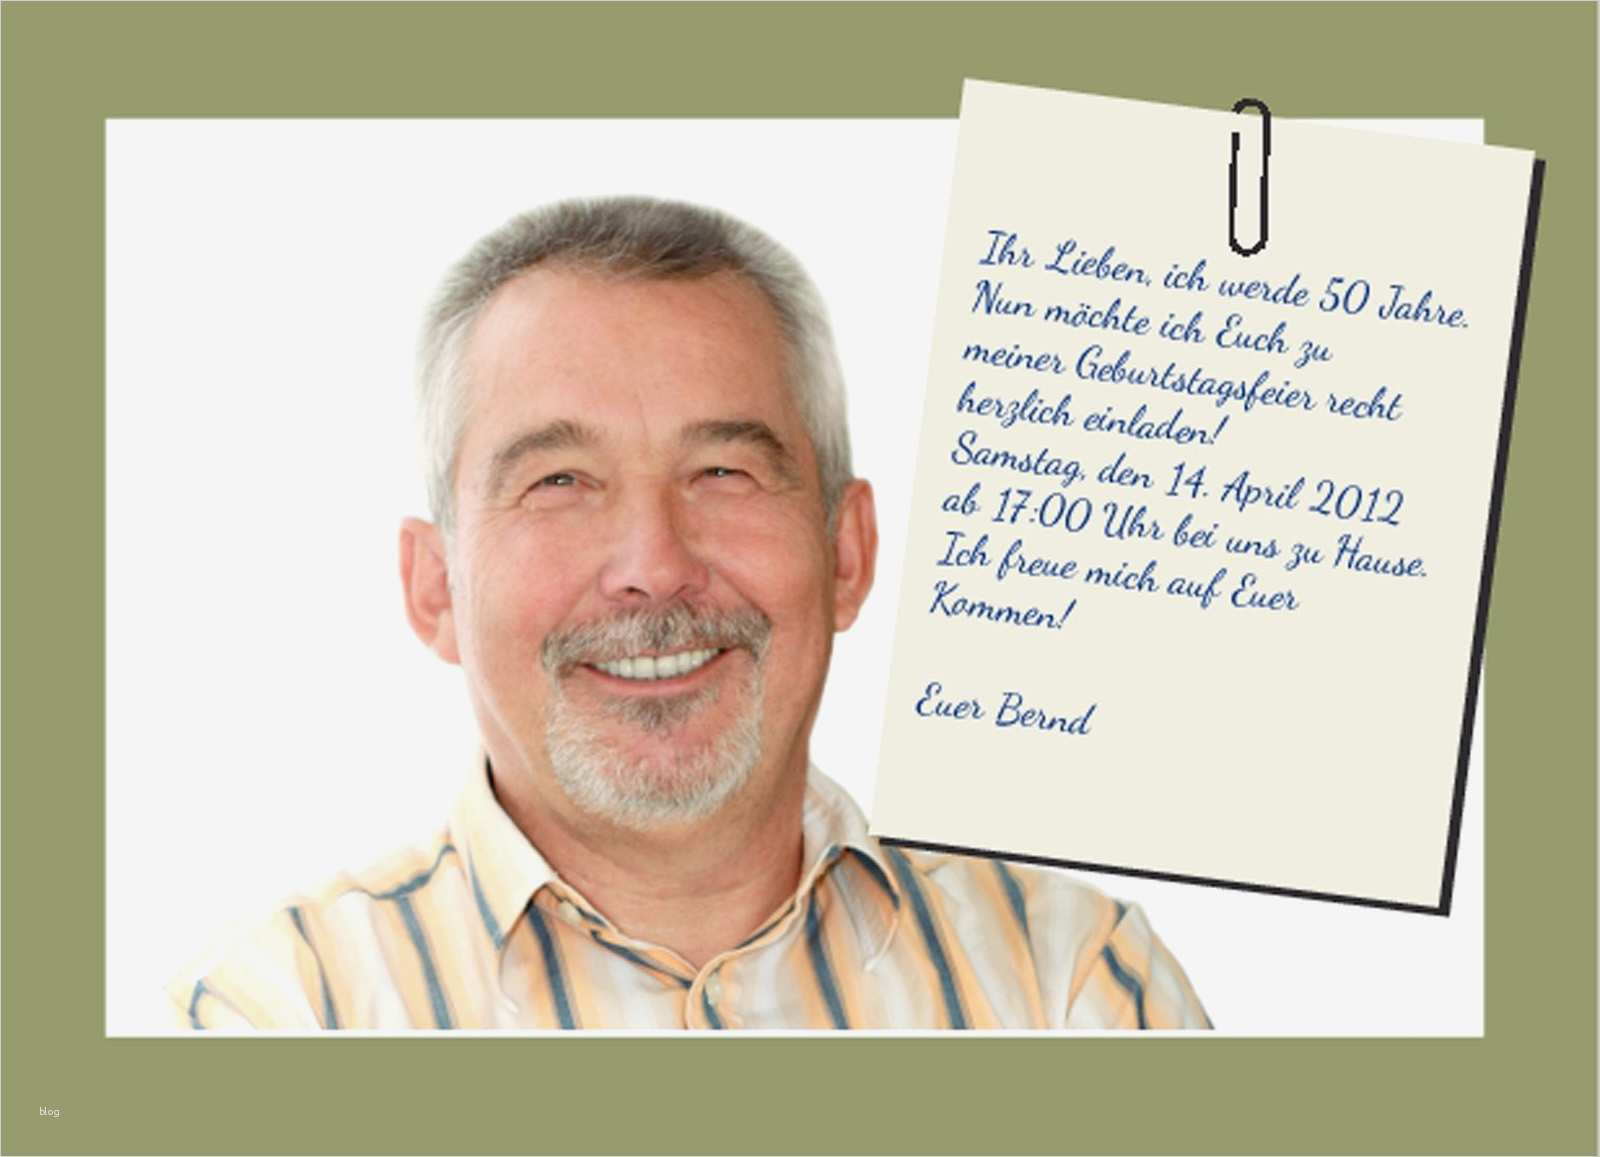 Ihr Lieben, ich werde 50 Jahre.
Nun möchte ich Euch zu
meiner Geburtstagsfeier recht
herzlich einladen!
Samstag, den 14. April 2012
ab 17:00 Uhr bei uns zu Hause.
Ich freue mich auf Euer
Kommen!
Euer Bernd
blog